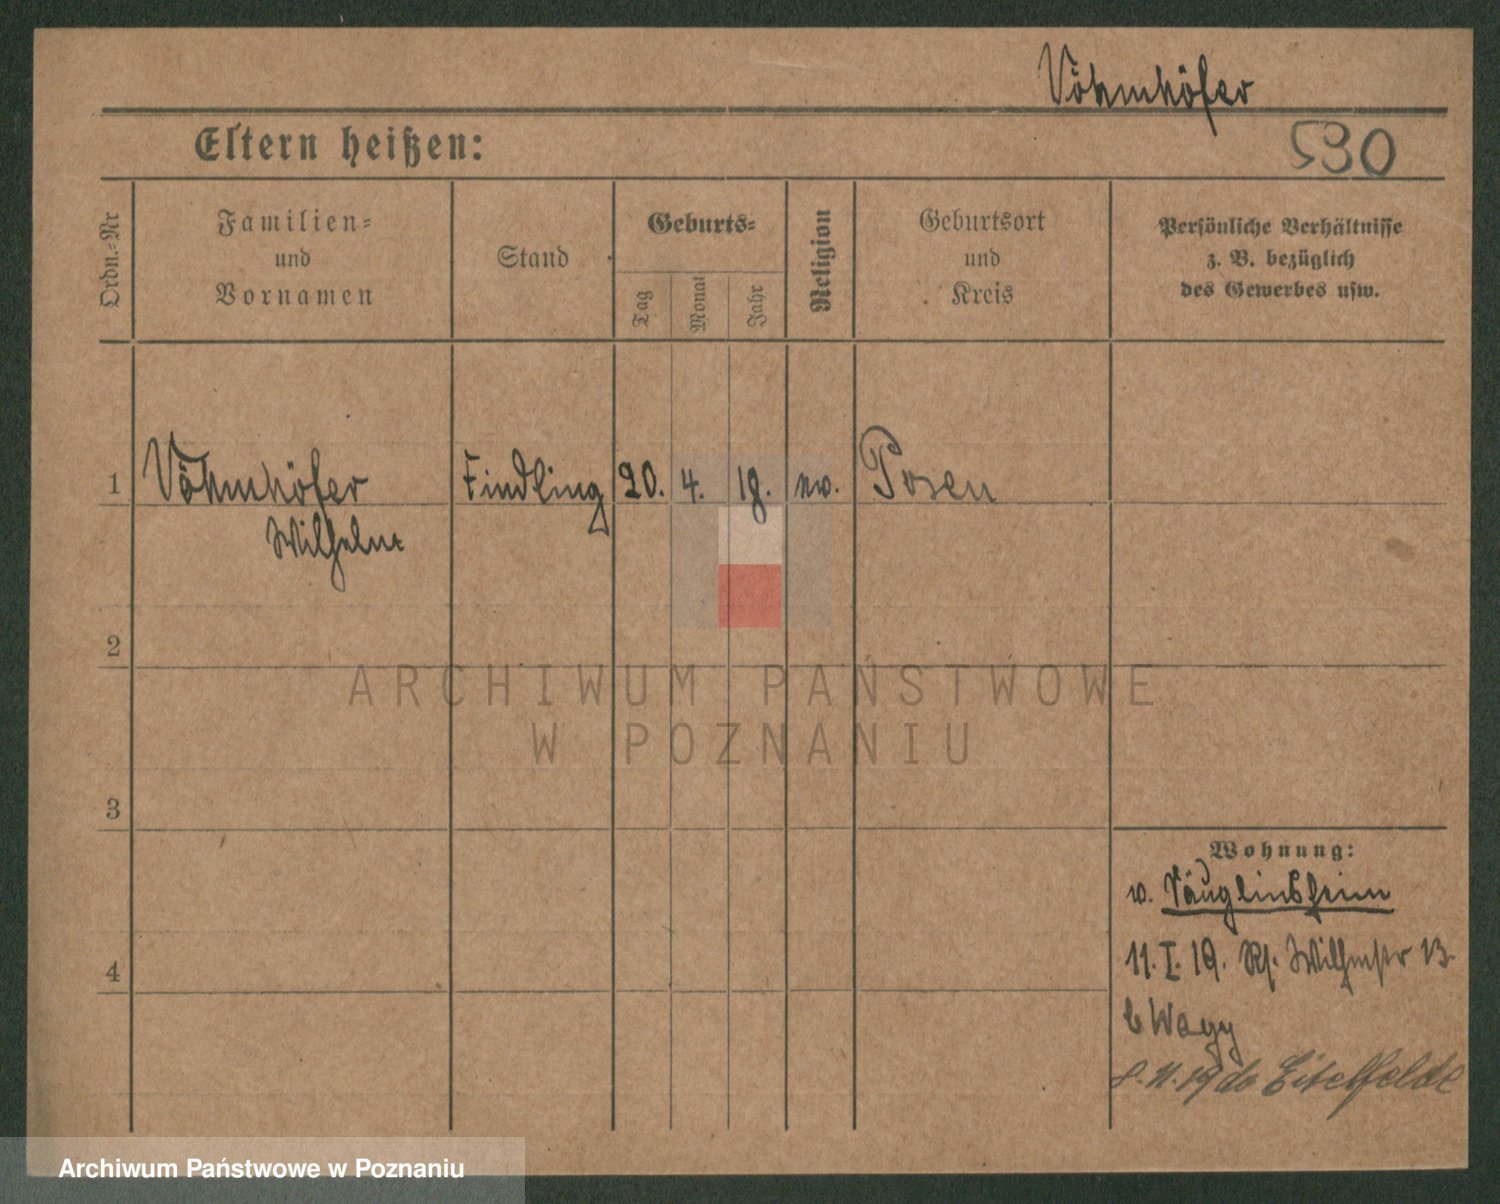 Vöhmhöfer
Eltern heißen:
590
Ordn.=Nr
Familien=
und
Vornamen
Stand
Geburts=
Tag
Monat
Jahr
Religion
Geburtsort
und
Kreis
Persönliche Verhältnisse
z. B. bezüglich
des Gewerbes usw.
1 Vöhmhöfer Findling 20. 4. 18. Posen
Wilhelm
2
3
4
Wohnung:
v. Säuglinsheim
11. I. 19. Wilhmstr 13
b Wagy
8. 11. 19 do Eitelfelde
ARCHIWUM PAŃSTWOWE
W POZNANIU
Archiwum Państwowe w Poznaniu